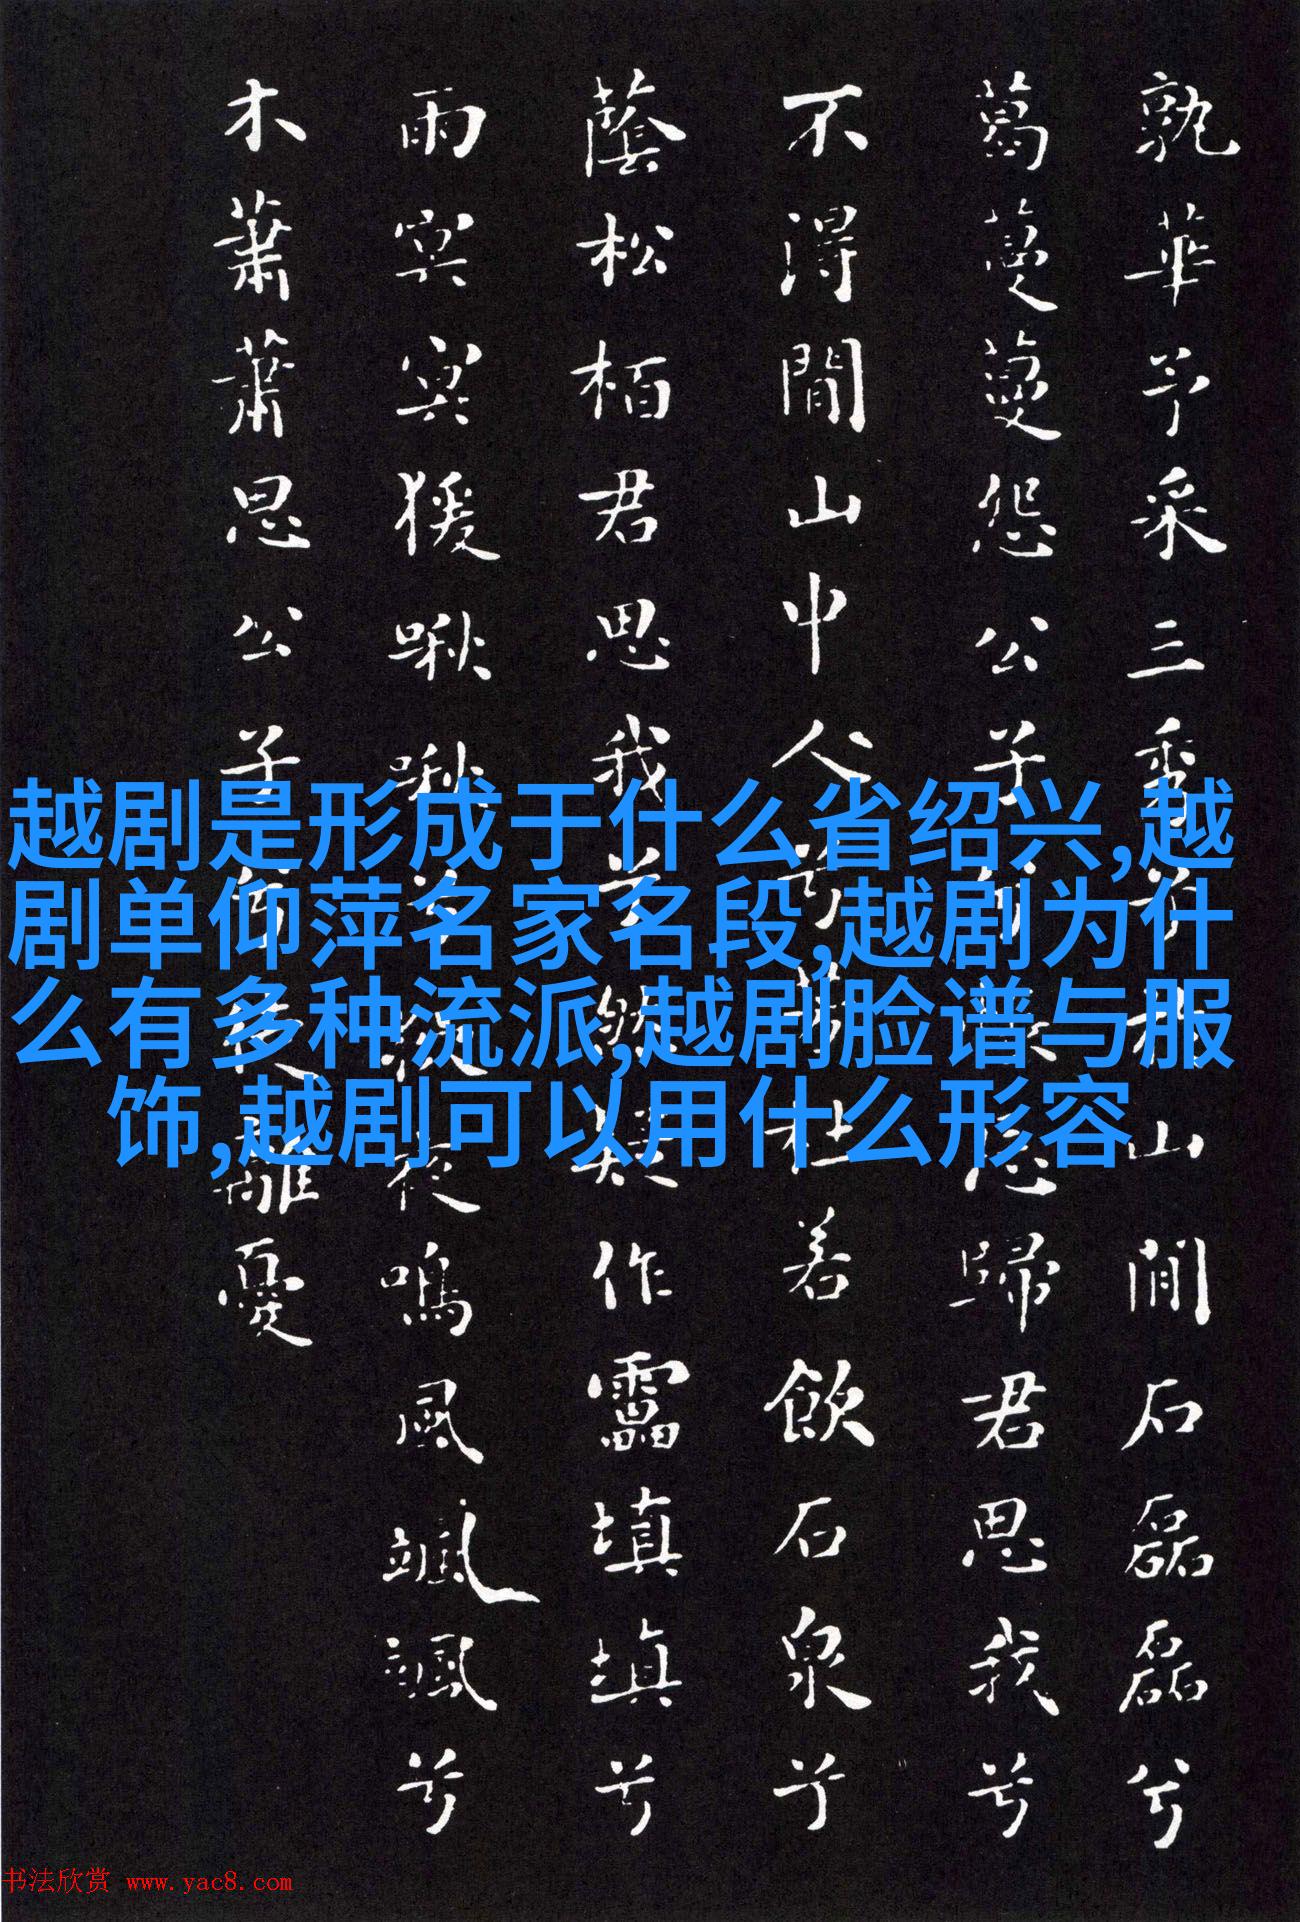 孰華予采三秀兮於山間石磊磊兮
葛蔓蔓怨公子兮悵忘歸君思我兮
不得間山中人兮芳杜若飲石泉兮
蔭松栢君思我兮然疑作靁填填兮
雨冥冥猨啾啾兮狖夜鳴風颯颯兮
木蕭蕭思公子兮徒離憂
越剧是形成于什么省绍兴,越
剧单仰萍名家名段,越剧为什
么有多种流派,越剧脸谱与服
饰,越剧可以用什么形容
书法欣赏 www.yac8.com